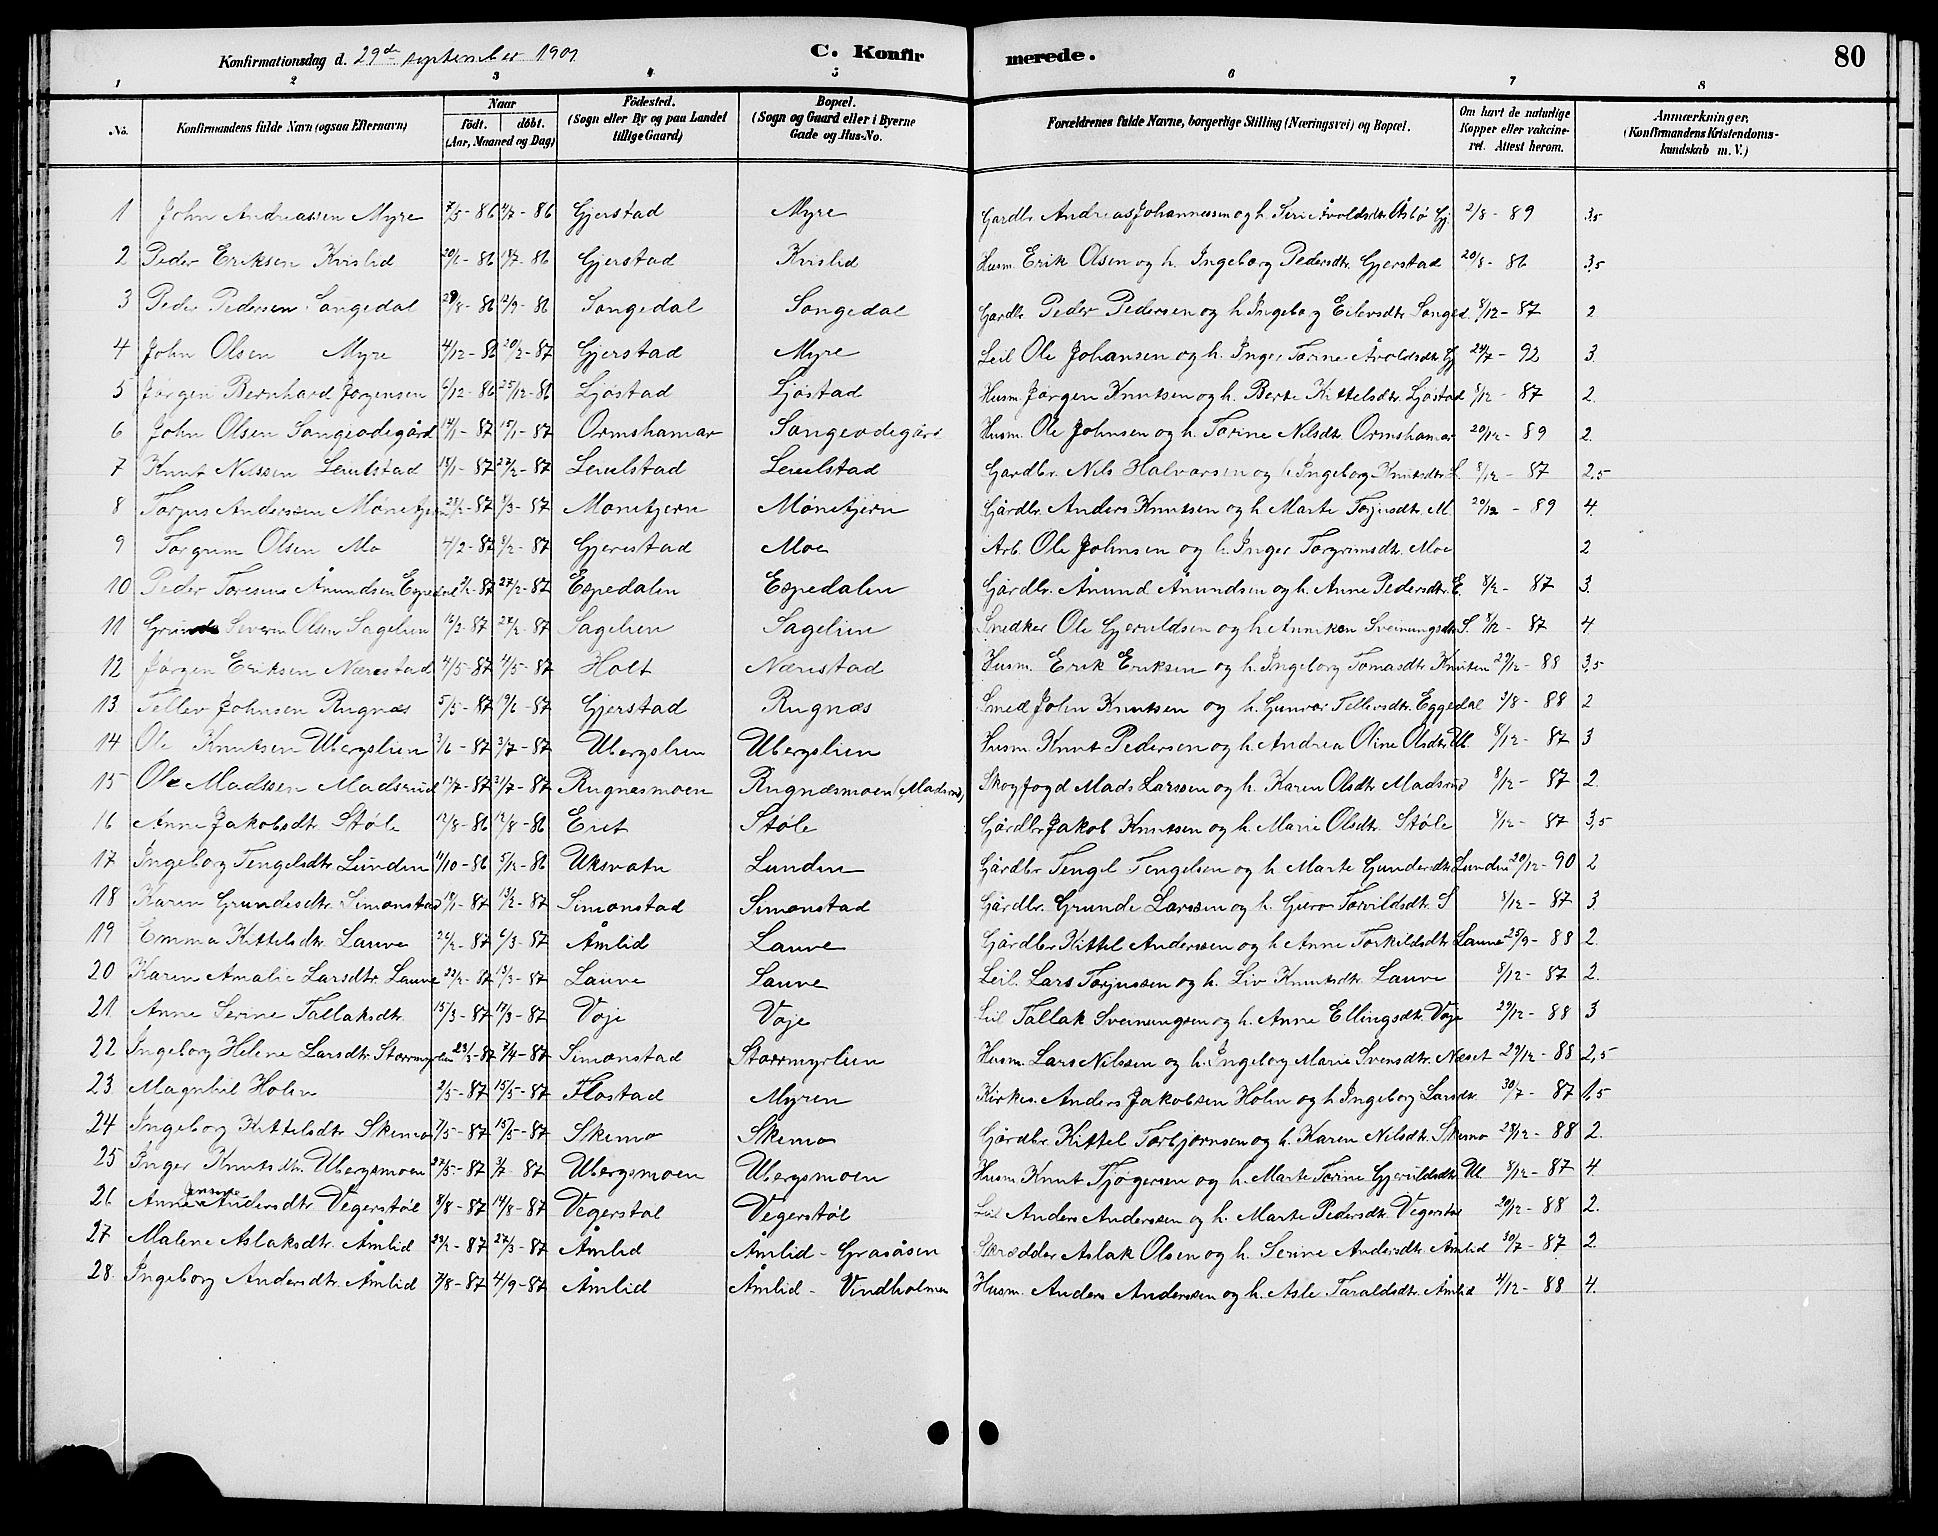 Konfirmationsdag d. 29de september 1901 C. Konfirmerede. 80
1 2 3 4 5 6 7 8
No. Konfirmandens fulde Navn (ogsaa Efternavn) Naar født. døbt. (Aar, Maaned og Dag) Fødested. (Sogn eller By og paa Landet tillige Gaard) Bopæl. (Sogn og Gaard eller i Byerne Gade og Hus-No. Forældrenes fulde Navne, borgerlige Stilling (Næringsvei) og Bopæl. Om havt de naturlige Kopper eller vakcineret. Attest herom. Anmærkninger. (Konfirmandens Kristendomskundskab m. V.)
1 John Andreassen Myre 7/5-86 4/7-86 Gjerstad Myre Gardbr. Andreas Johannessen og h. Serie Åvoldsdtr Åsbø Gj. 2/8-89 3,5
2 Peder Eriksen Kvislid 20/6-86 11/7-86 Gjerstad Kvislid Husm. Erik Olsen og h. Ingeborg Pedersdtr. Gjerstad 20/8-86 3,5
3 Peder Pedersen Songedal 29/8-86 12/9-86 Songedal Songedal Gardbr Peder Pedersen og h Ingeborg Eilevsdtr Songed. 8/12-87 2
4 John Olsen Myre 4/12-86 20/2-87 Gjerstad Myre Leil Ole Johansen og h. Inger Torine Åvoldsdtr Gj 24/7-92 3.
5 Jørgen Bernhard Jørgensen 6/12-86 25/12-86 Ljøstad Ljøstad Husm Jørgen Knutsen og h. Berte Kittelsdtr. Ljøstad 8/12-87 2.
6 John Olsen Songeødegård 14/1-87 15/1-87 Ormshamar Songeødegård Husm. Ole Johnsen og h. Torine Nilsdtr Ormshamar 20/12-89 2.
7 Knut Nilssen Leiulstad 13/1-87 27/2-87 Leiulstad Leiulstad Gardbr. Nils Halvorsen og h Ingeborg Knutsdtr. L. 8/12-87 2,5
8 Torjus Anderssen Mønetjern 23/2-87 /3-87 Mønetjern Mønetjern Gårdbr. Anders Knutsen og h. Marte Torjusdtr. M 20/12-89 4.
9 Torgrim Olsen Mo 4/2-87 /2-87 Gjerestad Moe Arb. Ole Johnsen og h. Inger Torgrimsdtr. Moe 2
10 Peder Toresius Ånundsen Espedal /2-87 27/2-87 Espedalen Espedalen Gårdbr. Ånund Ånundsen og h. Anne Pedersdtr. E. 8/12-87 3.
11 Grunde Severin Olsen Sagelien 16/2-87 27/2-87 Sagelien Sagelien Snedker Ole Gjeruldsen og h Anniken Sveinungsdtr S. 8/12-87 4
12 Jørgen Eriksen Nærestad 4/5-87 4/5-87 Holt Nærestad Husm. Erik Eriksen og h. Ingeborg Tomasdtr Knuten 29/12-88 3,5
13 Tellev Johnsen Rugnæs 5/5-87 19/6-87 Gjerstad Rugnæs Smed John Knutsen og h. Gunvor Tellevsdtr. Eggedal 3/8-88 2
14 Ole Knutsen Ubergslien 3/6-87 3/7-87 Ubergslien Ubergslien Husm. Knut Pedersen og h. Andrea Oline Olsdtr. Ub. 8/12-87 3
15 Ole Madssen Madsrud 13/7-87 31/7-87 Rugnesmoen Rugnæsmoen (Madsrud) Skogfogd Mads Larssen og h. Karen Olsdtr Madsrud 8/12-87 2.
16 Anne Jakobsdtr. Støle 12/8-86 12/8-86 Eret Støle Gårdbr Jakob Knutsen og h. Marie Olsdtr. Støle 8/12-87 3,5
17 Ingeborg Tengelsdtr Lunden 11/10-86 5/12-86 Uksvatn Lunden Gårdbr Tengel Tengelsen og h Marte Gundersdtr. Lunden 20/12-90 2
18 Karen Grundesdtr. Simonstad 19/1-87 13/2-87 Simonstad Simonstad Gårdbr. Grunde Larssen og h. Guro Torvildsdtr. S 8/12-87 3.
19 Emma Kittelsdtr. Lauve 26/2-87 6/3-87 Åmlid Lauve Gårdbr Kittel Anderssen og h Anne Torkildsdtr Lauve 25/9-88 2.
20 Karen Amalie Larsdtr. Lauve 22/2-87 13/3-87 Lauve Lauve Leil. Lars Torjussen og h. Liv Knutsdtr. Lauve 8/12-87 2.
21. Anne Serine Tallaksdtr. 15/3-87 17/3-87 Voje Voje Leil Tallak Sveinungsen og h. Anne Ellingsdtr. Voje 29/12-88 3
22 Ingeborg Helene Larsdtr. Storrmyrlien 23/3-87 /4-87 Simonstad Storrmyrlien Husm. Lars Nilssen og h. Ingeborg Marie Svensdtr. Næset 29/12-88 2,5
23. Magnhil Holm 2/5-87 15/5-87 Flostad Myren Kirkes. Anders Jakobsen Holm og h Ingeborg Larsdtr. 30/7-87 1,5
24 Ingeborg Kittelsdtr Skemo 7/5-87 15/5-87 Skemo Skemo Gårdbr. Kittel Torbjørnsen og h. Karen Nilsdtr. Skemo 29/12-88 2.
25 Inger Knutsdtr. Ubergsmoen 27/5-87 3/7-87 Ubergsmoen Ubergsmoen Husm Knut Tjøgersen og h. Marte Torine Gjeruldsdtr Ub 8/12-87 4.
26 Anne Jensine Andersdtr Vegerstøl 8/8-87 14/8-87 Vegerstøl Vegerstøl Leil Anders Anderssen og h. Marte Pedersdtr. Vegerstøl 29/12-88 2.
27 Malene Aslaksdtr. Åmlid 23/2-87 27/3-87 Åmlid Åmlid - Gråsåsen Skrædder Aslak Olsen og h. Serine Andersdtr. Åmlid 30/7-87 2
28. Ingeborg Andersdtr. Åmlid 7/8-87 4/9-87 Åmlid Åmlid - Vindholmen Husm. Anders Anderssen og h. Asle Taraldsdtr. Åmlid 4/12-88 4.